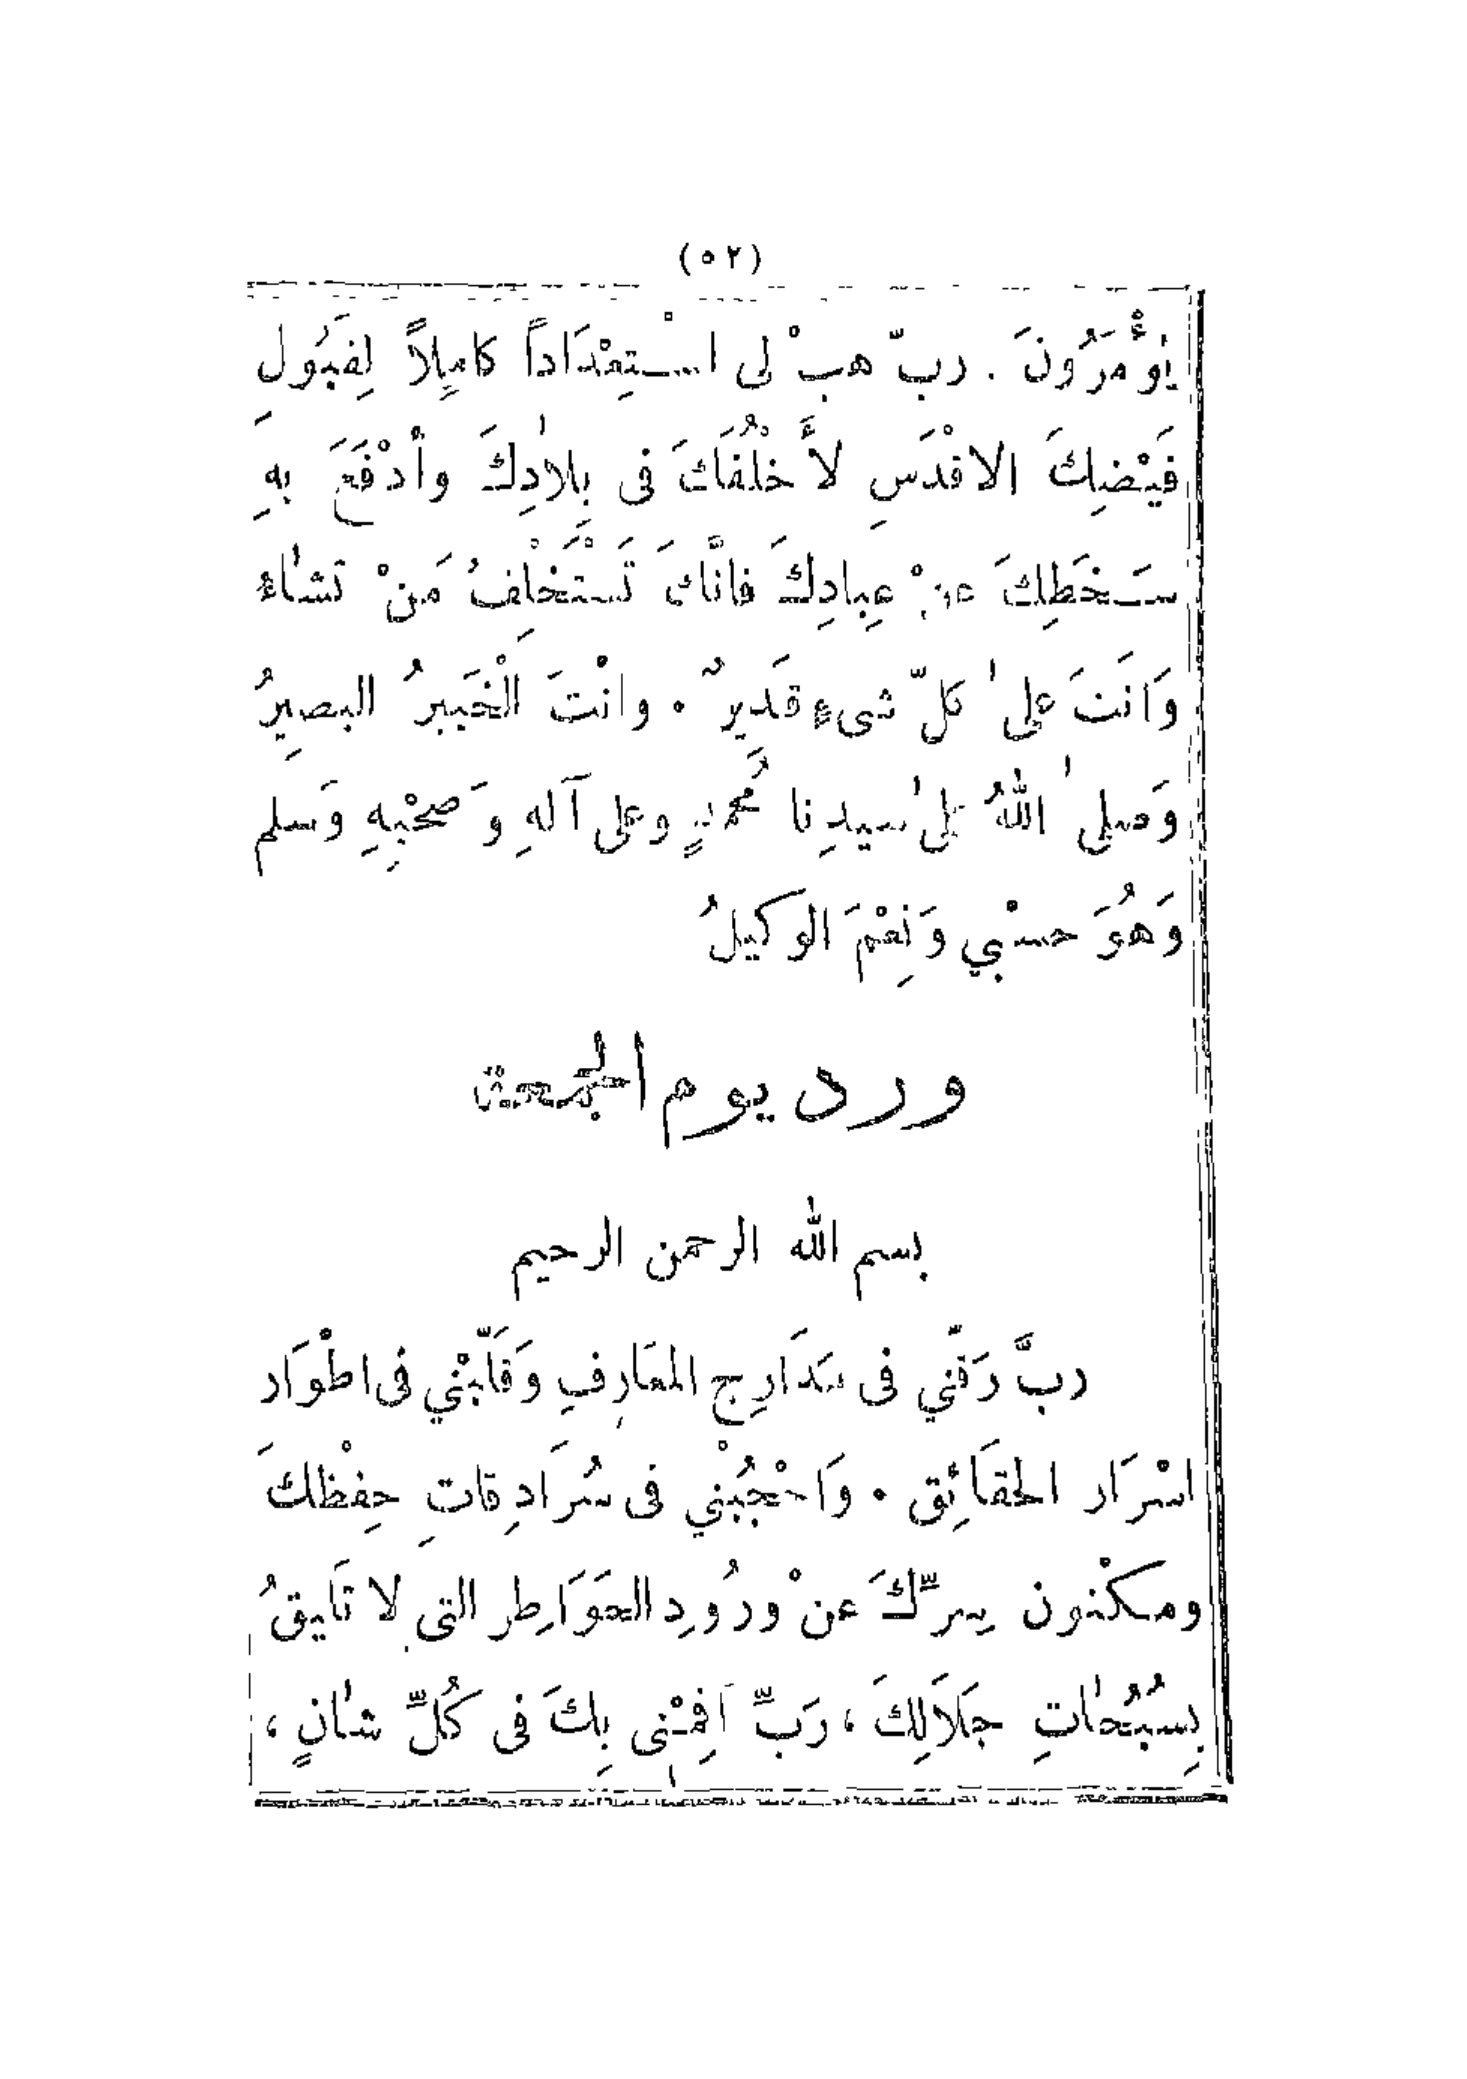 (٥٢)
يُؤْمَرُونَ . ربّ هبْ لى اسْتِعْدَاداً كامِلاً لِقَبُولِ
فَيْضِكَ الاقْدَسِ لأَخْلُفَكَ فى بِلاٰدِكَ وأدْفَعَ بهِ
سَخَطِكَ عنْ عِبادِكَ فانَّكَ تَسْتَخْلِفُ مَنْ تشاٰءُ
وَانتَ علىٰ كلّ شىءٍ قَدِيرٌ . وانْتَ الْخَبِيرُ البصِيرُ
وَصلىٰ اللهُ علىٰ سيدِنا مُحمدٍ وعلى آلهِ وَصحْبِهِ وَسلم
وَهُوَ حسْبي وَنِعْمَ الوكيلُ
ورد يوم الجمعة
بسم الله الرحمن الرحيم
ربَّ رَقّني فى مَدَارِج المعَارِفِ وَقَلّبْني فى اطْوَار
اسْرَار الحقَائِق . وَاحْجُبْنْي فى سُرَادِقاتِ حِفْظكَ
ومكْنون سِرِّكَ عنْ ورُودِ الخَوَاطِر التى لا تَليقُ
بِسُبُحٰاتِ جَلَالِكَ ، رَبِّ اَقِمْنِى بِكَ فى كُلِّ شانٍ ،